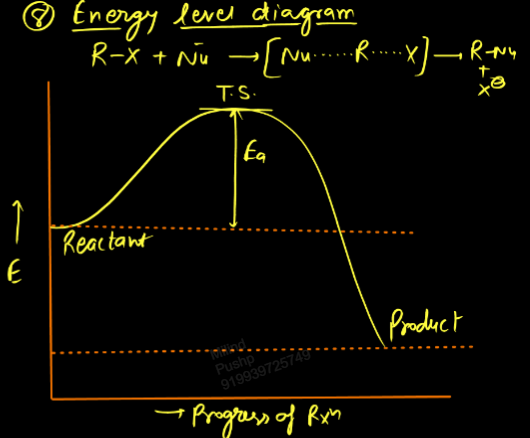 ⑧ Energy level diagram
R-X + Nu⁻ → [Nu······R·····X] → R-Nu
+
X⊖
T.S.
Ea
Reactant
↑
E
Product
Milind
Pushp
919939725749
→ Progress of Rxn